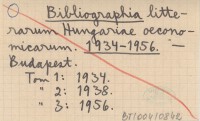 Bibliographia litte-
rarum Hungariae oecono-
micarum. 1934-1956. -
Budapest.
Tom 1: 1934.
" 2: 1938.
" 3: 1956.
BT100410842